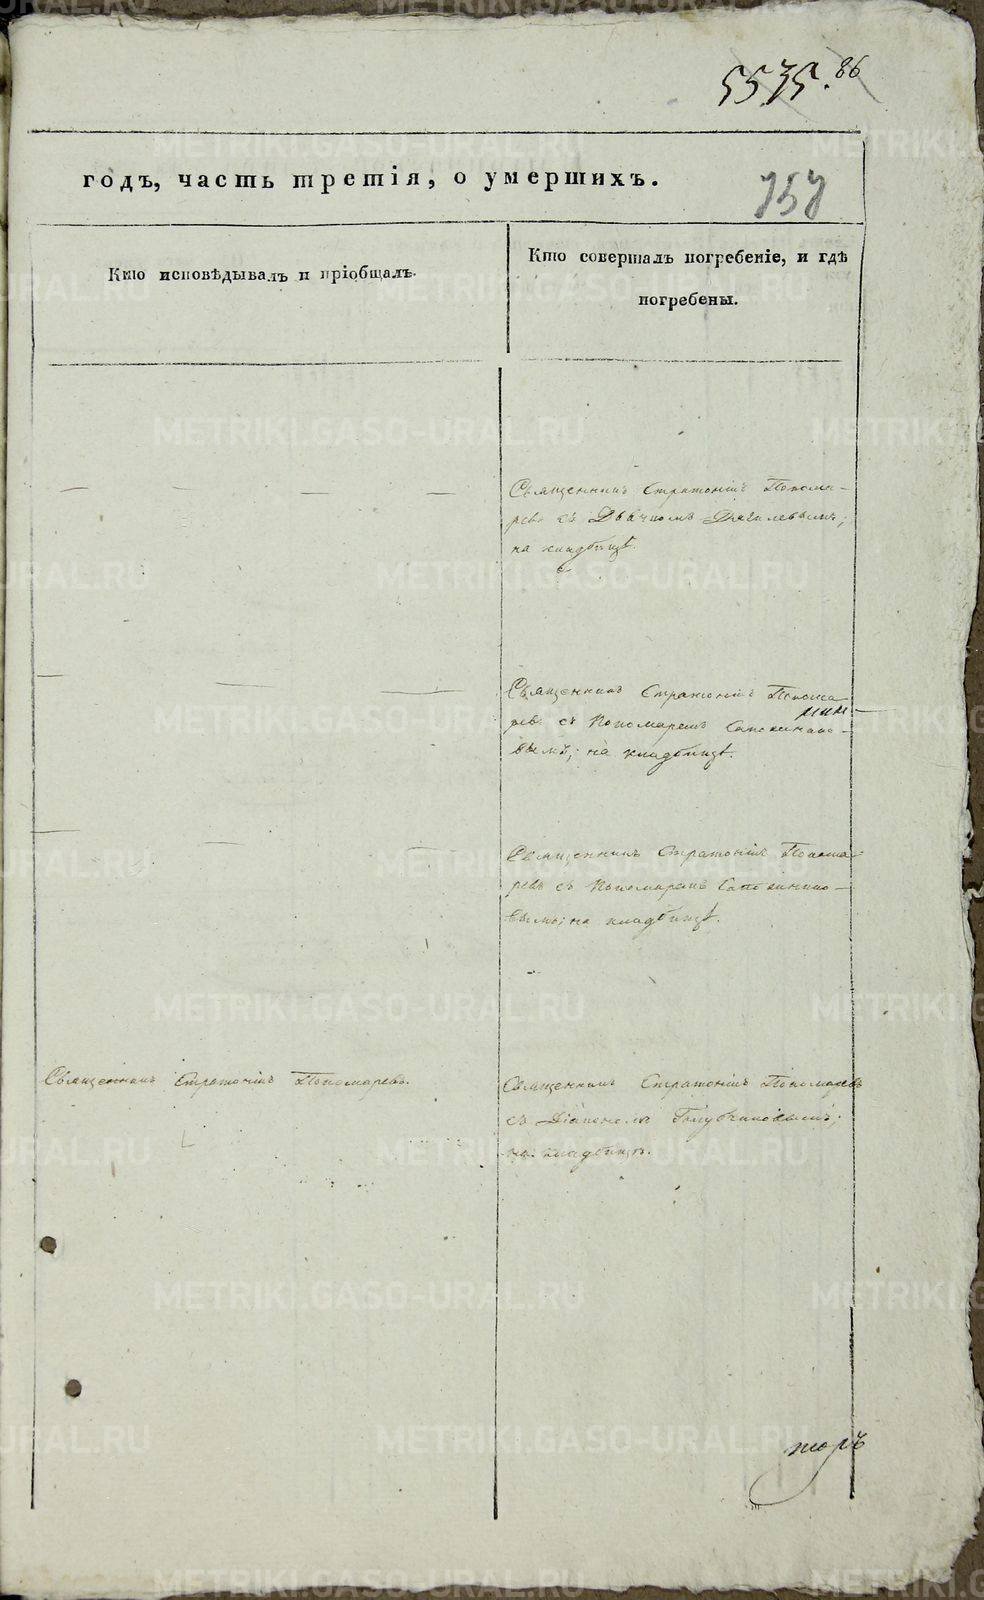 5535. 86
годъ, часть третія, о умершихъ.
757
Кто исповѣдывалъ и пріобщалъ.
Кто совершалъ погребеніе, и гдѣ
погребены.
Священникъ Стратоникъ Понома-
ревъ съ Дьячкомъ Дягилевымъ;
на кладбищѣ.
Священникъ Стратоникъ Понома
ревъ съ Пономаремъ
вымъ; на кладбищѣ.
Священникъ Стратоникъ Понома-
ревъ съ Пономаремъ
вымъ; на кладбищѣ.
Священникъ Стратоникъ Пономаревъ.
Священникъ Стратоникъ Пономаревъ
съ Діакономъ Голубчиковымъ;
на кладбищѣ.
METRIKI.GASO-URAL.RU